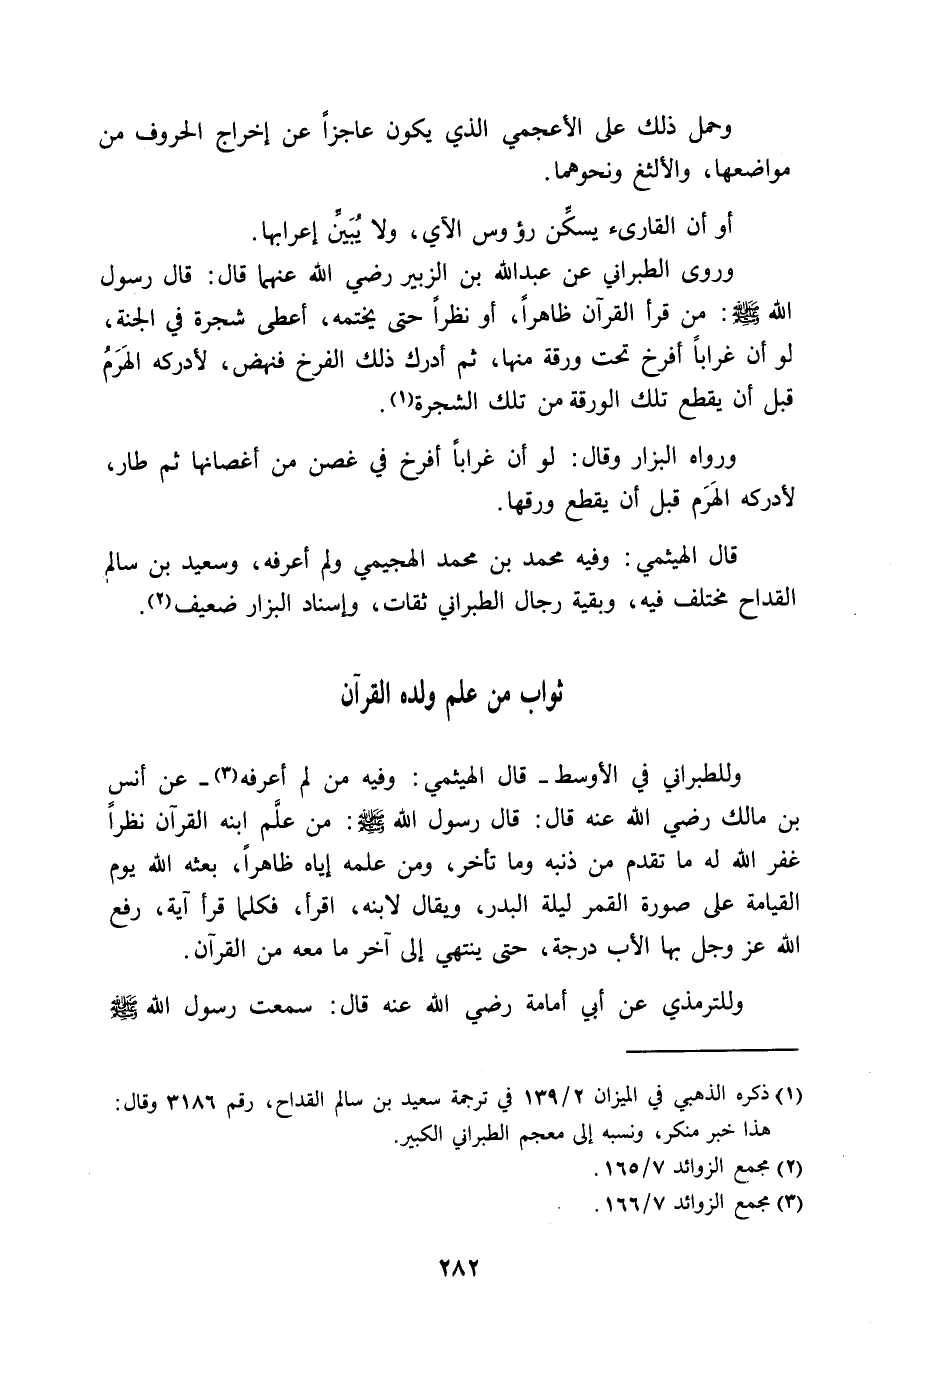 وحمل ذلك على الأعجمي الذي يكون عاجزاً عن إخراج الحروف من
مواضعها، والألثغ ونحوهما.
أو أن القارىء يسكِّن رؤوس الآي، ولا يُبَيِّن إعرابها.
وروى الطبراني عن عبدالله بن الزبير رضي الله عنهما قال: قال رسول
الله ﷺ: من قرأ القرآن ظاهراً، أو نظراً حتى يختمه، أعطى شجرة في الجنة،
لو أن غراباً أفرخ تحت ورقة منها، ثم أدرك ذلك الفرخ فنهض، لأدركه الهَرَمُ
قبل أن يقطع تلك الورقة من تلك الشجرة(١).
ورواه البزار وقال: لو أن غراباً أفرخ في غصن من أغصانها ثم طار،
لأدركه الهَرَم قبل أن يقطع ورقها.
قال الهيثمي: وفيه محمد بن محمد الهجيمي ولم أعرفه، وسعيد بن سالم
القداح مختلف فيه، وبقية رجال الطبراني ثقات، وإسناد البزار ضعيف(٢).
ثواب من علم ولده القرآن
وللطبراني في الأوسط ـ قال الهيثمي: وفيه من لم أعرفه(٣) ـ عن أنس
بن مالك رضي الله عنه قال: قال رسول الله ﷺ: من علَّم ابنه القرآن نظراً
غفر الله له ما تقدم من ذنبه وما تأخر، ومن علمه إياه ظاهراً، بعثه الله يوم
القيامة على صورة القمر ليلة البدر، ويقال لابنه، اقرأ، فكلما قرأ آية، رفع
الله عز وجل بها الأب درجة، حتى ينتهي إلى آخر ما معه من القرآن.
وللترمذي عن أبي أمامة رضي الله عنه قال: سمعت رسول الله ﷺ
(١) ذكره الذهبي في الميزان ١٣٩/٢ في ترجمة سعيد بن سالم القداح، رقم ٣١٨٦ وقال:
هذا خبر منكر، ونسبه إلى معجم الطبراني الكبير.
(٢) مجمع الزوائد ١٦٥/٧.
(٣) مجمع الزوائد ١٦٦/٧.
٢٨٢